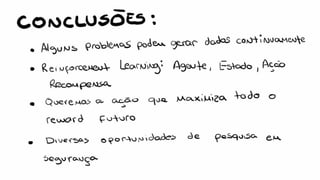 CONCLUSÕES:
• Alguns problemas podem gerar dados continuamente
• Reinforcement Learning: Agente, Estado, Ação
Recompensa
• Queremos a ação que maximiza todo o
reward futuro
• Diversas oportunidades de pesquisa em
segurança